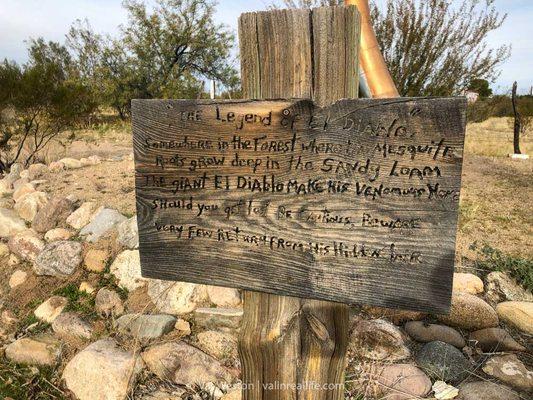 "The Legend of El Diablo"
Somewhere in the Forest where the Mesquite
Roots grow deep in the Sandy Loam
The giant El Diablo make his venomous Home
Should you get lost Be Cautious, Beware
Very Few Return From His Hidden Lair
© Val in Real Life | valinreallife.com